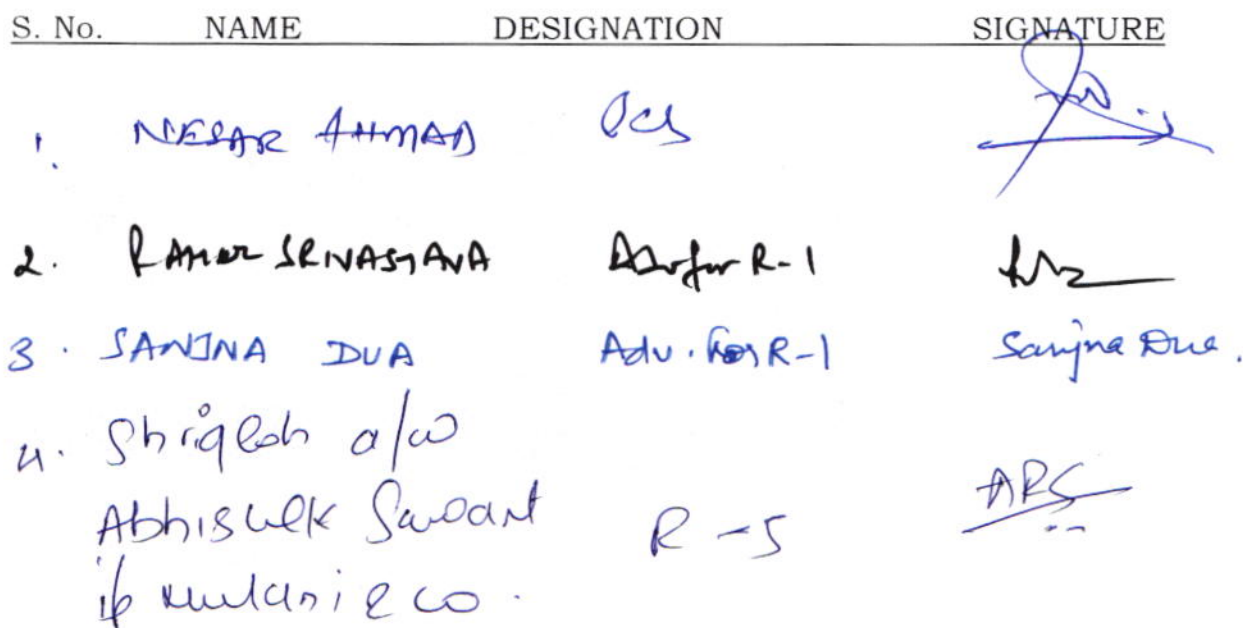 S. No. NAME DESIGNATION SIGNATURE
1. NESAR AHMAD PCS
2. RAHUL SRIVASTAVA Adv for R-1
3. SANJNA DUA Adv. for R-1 Sanjna Dua.
4. a/w
Abhishek Sawant R-5 ARS
& co.